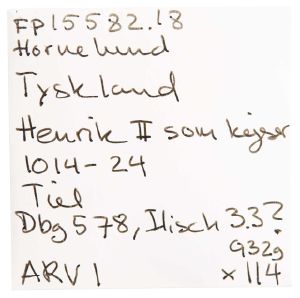 FP15582.18
Hornelund
Tyskland
Henrik II som kejser
1014-24
Tiel
Dbg 578, Ilisch 3.3?
G32g
ARV I x 114